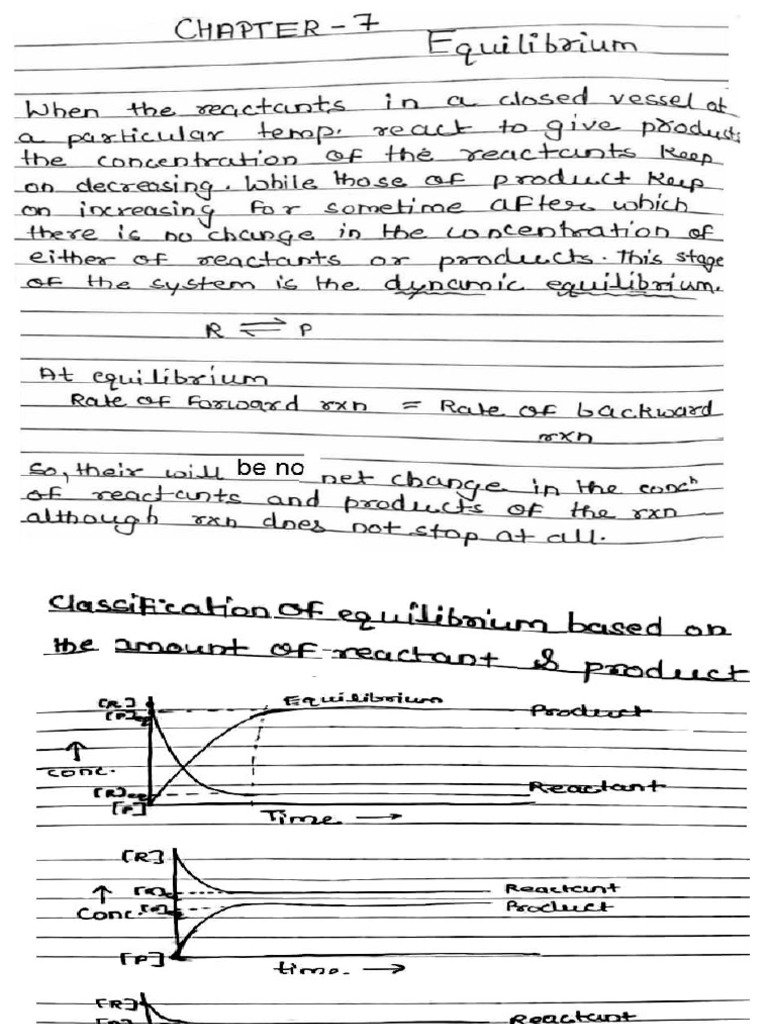 CHAPTER - 7
Equilibrium
When the reactants in a closed vessel at
a particular temp. react to give products
the concentration of the reactants keep
on decreasing. While those of product keep
on increasing for sometime after which
there is no change in the concentration of
either of reactants or products. This stage
of the system is the dynamic equilibrium.
R ⇌ P
At equilibrium
Rate of Forward rxn = Rate of backward
rxn
So, their will be no net change in the concn
of reactants and products of the rxn
although rxn does not stop at all.
Classification of equilibrium based on
the amount of reactant & product
[R] Equilibrium
[P]eq Product
↑
conc.
[R]eq Reactant
[P]
Time →
[R]
↑ Reactant
Conc. Product
[P]
time. →
[R]
Reactant